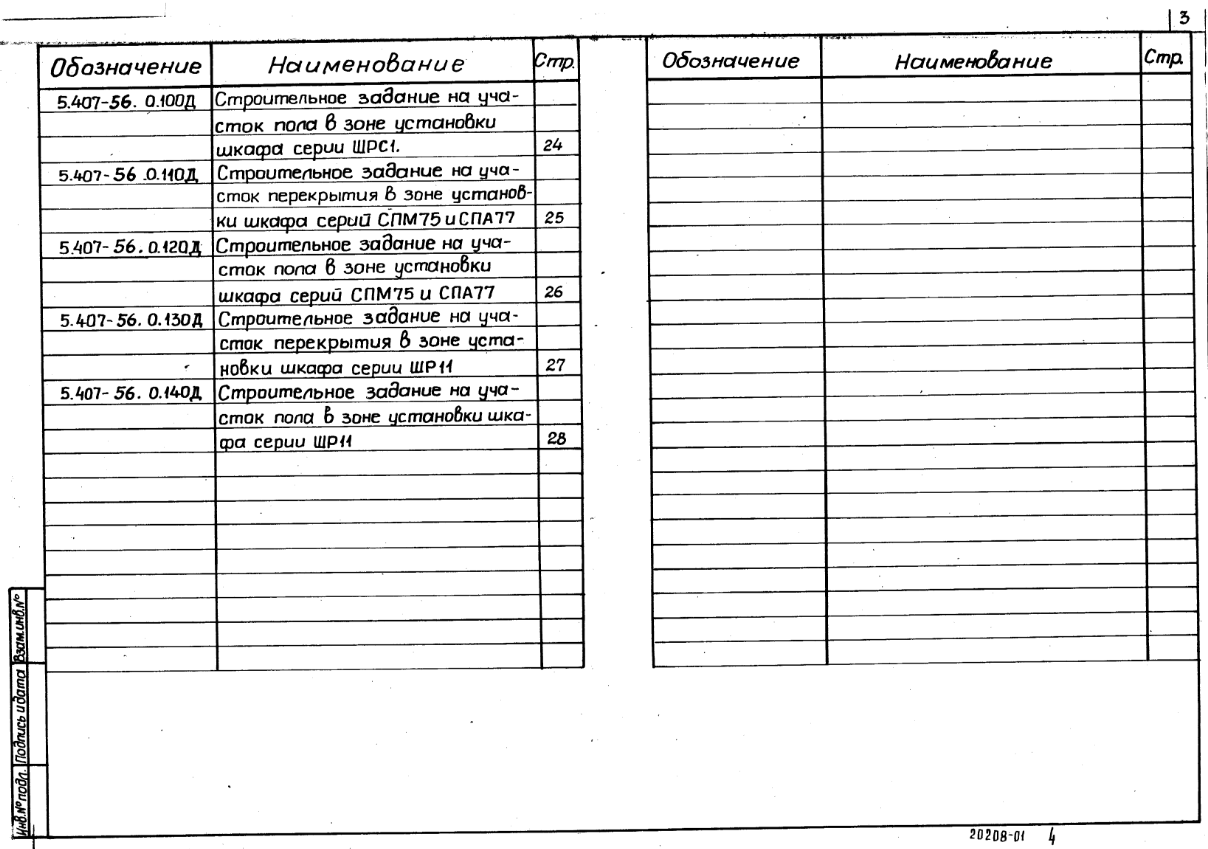 3
Обозначение Наименование Стр.
5.407-56. 0.100Д Строительное задание на уча-
сток пола в зоне установки
шкафа серии ШРС1. 24
5.407-56.0.110Д Строительное задание на уча-
сток перекрытия в зоне установ-
ки шкафа серий СПМ75 и СПА77 25
5.407-56.0.120Д Строительное задание на уча-
сток пола в зоне установки
шкафа серий СПМ75 и СПА77 26
5.407-56.0.130Д Строительное задание на уча-
сток перекрытия в зоне уста-
новки шкафа серии ШР11 27
5.407-56. 0.140Д Строительное задание на уча-
сток пола в зоне установки шка-
фа серии ШР11 28
Обозначение Наименование Стр.
Инв.№подл. Подпись и дата Взам.инв.№
20208-01 4